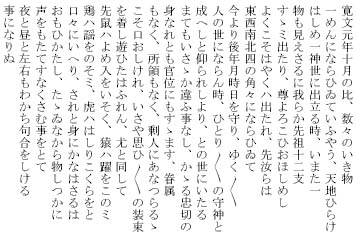 寛文元年十月の比、数々のいき物
一めんにならひゐていふやう、天地ひらけ
はしめ一神世に出立る時、いまた一
物も見えさるに我らか先祖十二支
すゝミ出たり、尊よろこひおほしめし
よくこそはやく〳〵出たれ、先汝らは
東西南北四の角々にならひゐて
今より後年月時日を守り、ゆく〳〵
人の世にならん時、ひとり〳〵の守神と
成へしと仰られしより、との世にいたる
まてもいさゝか違ふ事なし、かゝる忠切の
身なれとも官位にもすゝます、眷属
もなく、所領もなく、剰人にあなつらるゝ
こそ口おしけれ、いさや思ひ〳〵の装束
を着し遊ひたはふれん、尤と同して
先鼠ハよめ入をいそく、猿ハ躍をこのミ
鶏ハ謡をのそミ、虎ハはしりこくらをと
口々にいへり、されと身にかなはさるは
おもひかたし、たゝゐなから物しつかに
声をもたてすなくさむ事をとて
夜と昼と左右もわかち句合をしける
事になりぬ